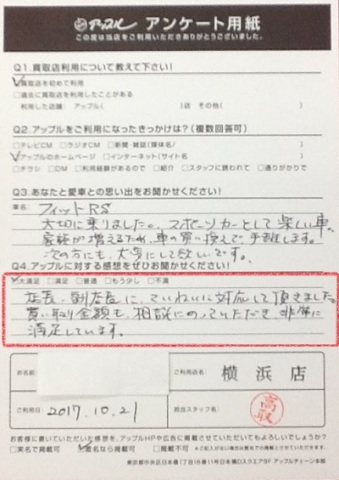 アップル アンケート用紙
この度は当店をご利用いただきありがとうございました。
Q1.買取店利用について教えて下さい!
☑買取店を初めて利用
□過去に買取店を利用したことがある
利用した店舗: アップル( )店 その他( )
Q2.アップルをご利用になったきっかけは?(複数回答可)
□テレビCM □ラジオCM □新聞・雑誌(媒体名/ )
☑アップルのホームページ □インターネット(サイト名 )
□チラシ □DM □利用経験があるので □紹介 □スタッフに誘われて □通りがかりで
Q3.あなたと愛車との思い出をお聞かせください!
車名: フィットRS
大切に乗りました。スポーツカーとして楽しい車。
家族が増えるため、車の買い換えで手離します。
次の方にも、大事にして欲しいです。
Q4.アップルに対する感想をぜひお聞かせください!
☑大満足 □満足 □普通 □もう少し □不満
店長、副店長に、ていねいに対応して頂きました。
買い取り金額も、相談にのっていただき、非常に
満足しています。
お名前:
ご利用店名: 横浜店
ご利用日: 2017.10.21
担当スタッフ名: 高取
お客様に書いていただいた感想を、アップルHPや広告に掲載させていただいてもよろしいでしょうか?
□実名で掲載可 ☑匿名なら掲載可 □掲載不可
東京都中央区日本橋1丁目15番11号日本橋DスクエアBF アップルチェーン本部